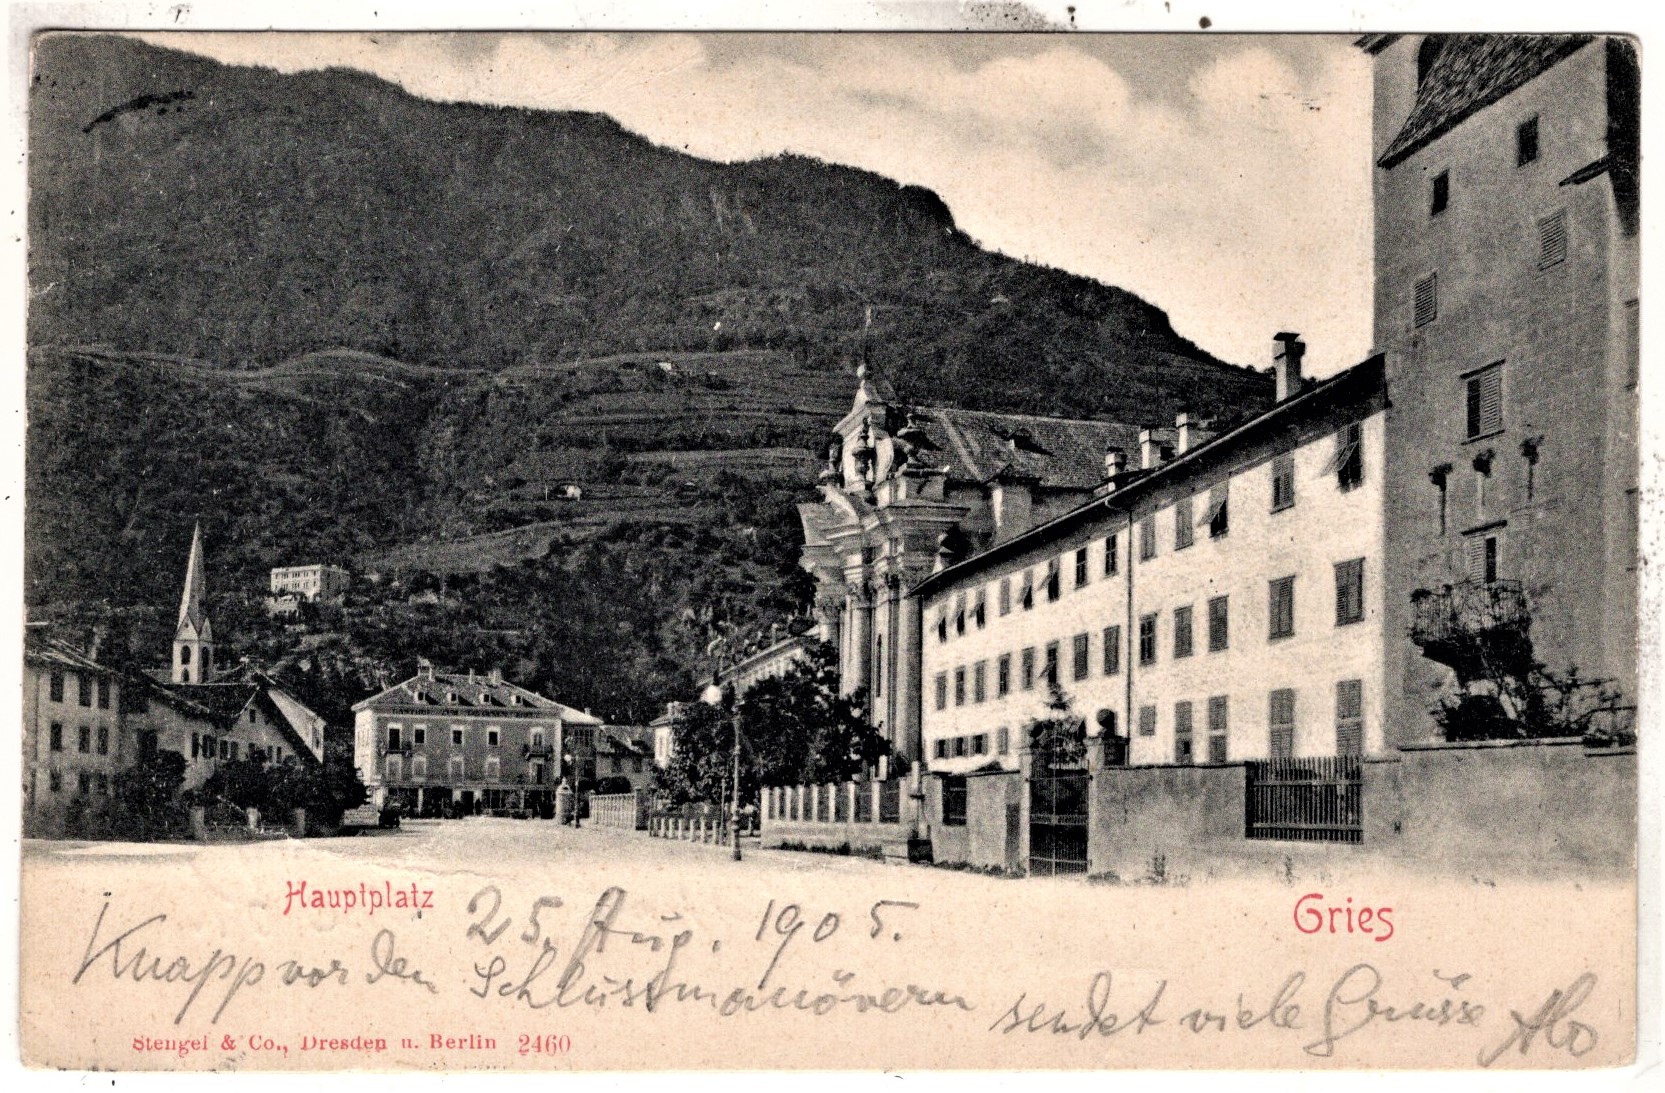 Hauptplatz
Gries
25. Aug. 1905.
Knapp vor den Schlussmanövern sendet viele Grüsse
Stengel & Co., Dresden u. Berlin 2460